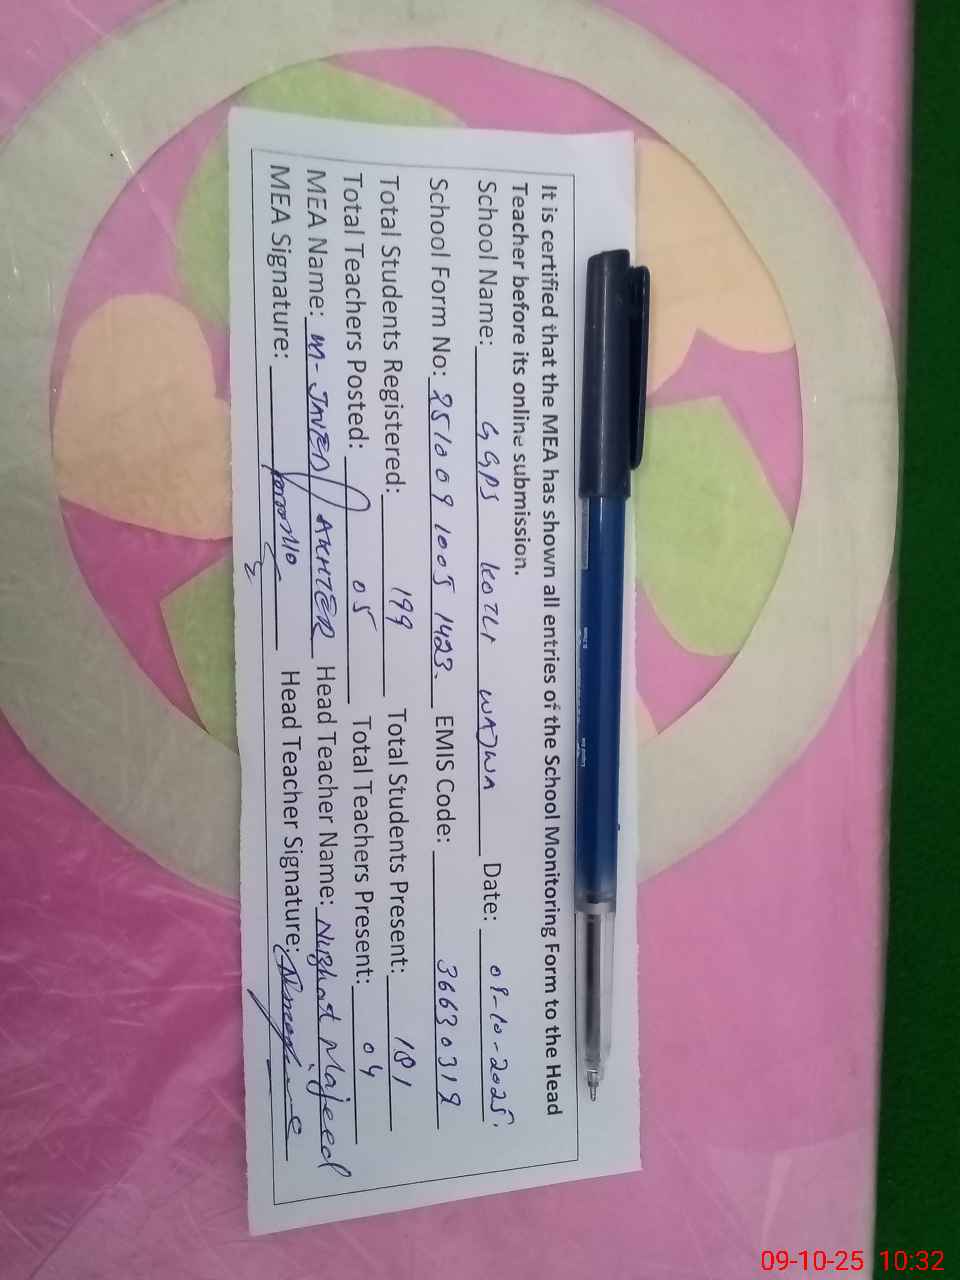 It is certified that the MEA has shown all entries of the School Monitoring Form to the Head
Teacher before its online submission.
School Name: GGPS KOTLI WAJWA Date: 09-10-2025
School Form No: 251009 1005 1423 EMIS Code: 36630319
Total Students Registered: 199 Total Students Present: 181
Total Teachers Posted: 05 Total Teachers Present: 04
MEA Name: M-JAVED AKHTER Head Teacher Name: Nuzhat Majeed
MEA Signature: Head Teacher Signature:
09-10-25 10:32